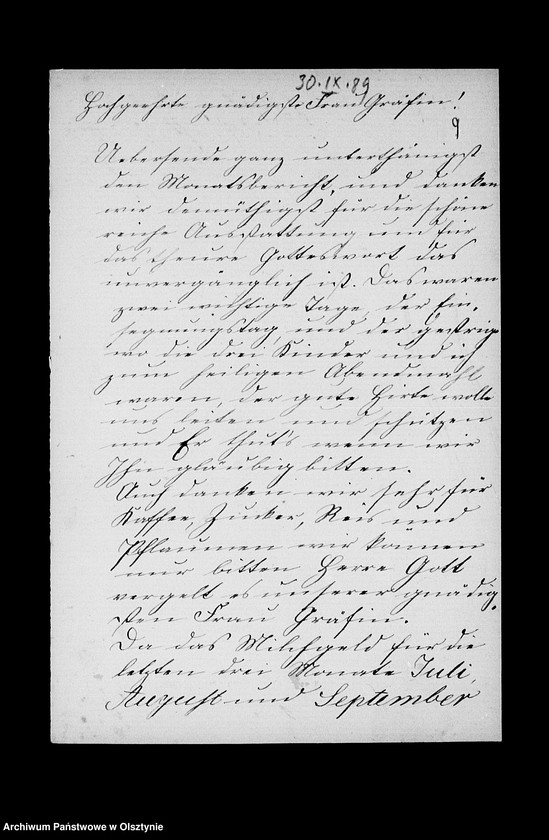 30.IX.89
Hochgeehrte gnädigste Frau Gräfin!
9
Uebersende ganz unterthänigst
den Monatsbericht, und danken
wir demüthigst für die schöne
reiche Ausstattung und für
das theure Gotteswort das
unvergänglich ist. Das waren
zwei wichtige Tage, der Ein-
segnungstag, und der gestrige
wo die drei Kinder und ich
zum heiligen Abendmahl
waren, der gute Hirte wolle
uns leiten und schützen
und Er thut's wenn wir
Ihn gläubig bitten.
Auch danken wir sehr für
Kaffee, Zucker, Reis und
Pflaumen wir können
nur bitten Herre Gott
vergelt es unserer gnädig-
sten Frau Gräfin.
Da das Milchgeld für die
letzten drei Monate Juli,
August und September
Archiwum Państwowe w Olsztynie